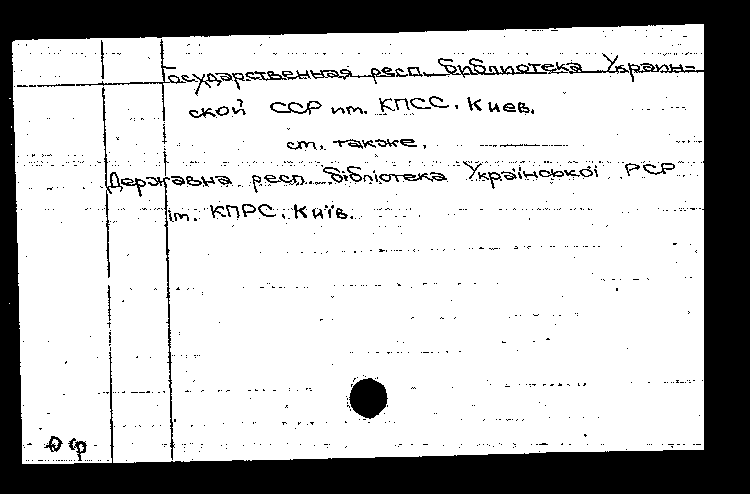 Государственная респ. библиотека Украин-
ской ССР им. КПСС. Киев.
см. также.
Державна респ. бібліотека Української РСР
ім. КПРС. Київ.